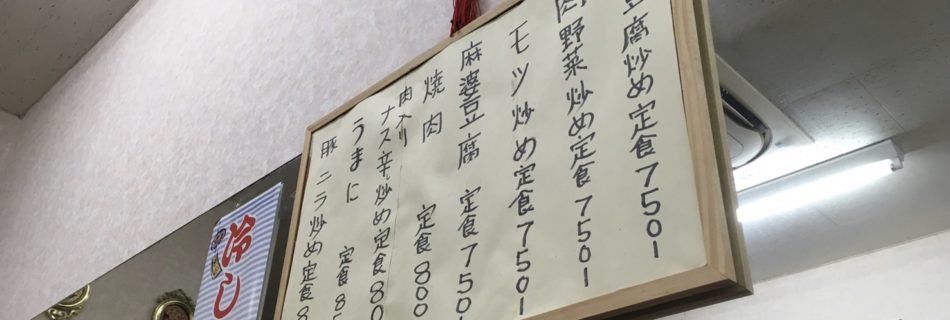 豆腐炒め定食750l
肉野菜炒め定食750l
モツ炒め定食750l
麻婆豆腐 定食750
焼肉 定食800
肉入り
ナス辛炒め定食80
うまに 定食8
豚ニラ炒め定食8
冷し